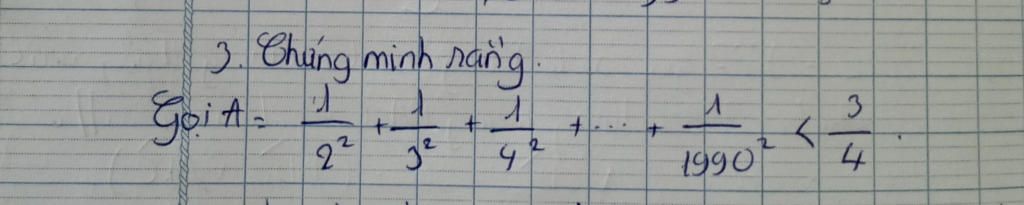 3. Chứng minh rằng.
Gọi A = 1/2² + 1/3² + 1/4² + ... + 1/1990² < 3/4.